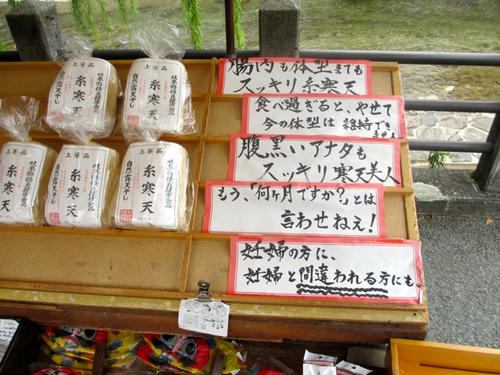 腸内も体型までも
スッキリ糸寒天
食べ過ぎると、やせて
今の体型は 維持でき
ません
腹黒いアナタも
スッキリ寒天美人
もう、「何ヶ月ですか?」とは
言わせねぇ!
妊婦の方に、
妊婦と間違われる方にも
上等品
糸寒天
自然露天干し
上等品
糸寒天
自然露天干し
上等品
糸寒天
上等品
糸寒天
自然露天干し
上等品
糸寒天
自然露天干し